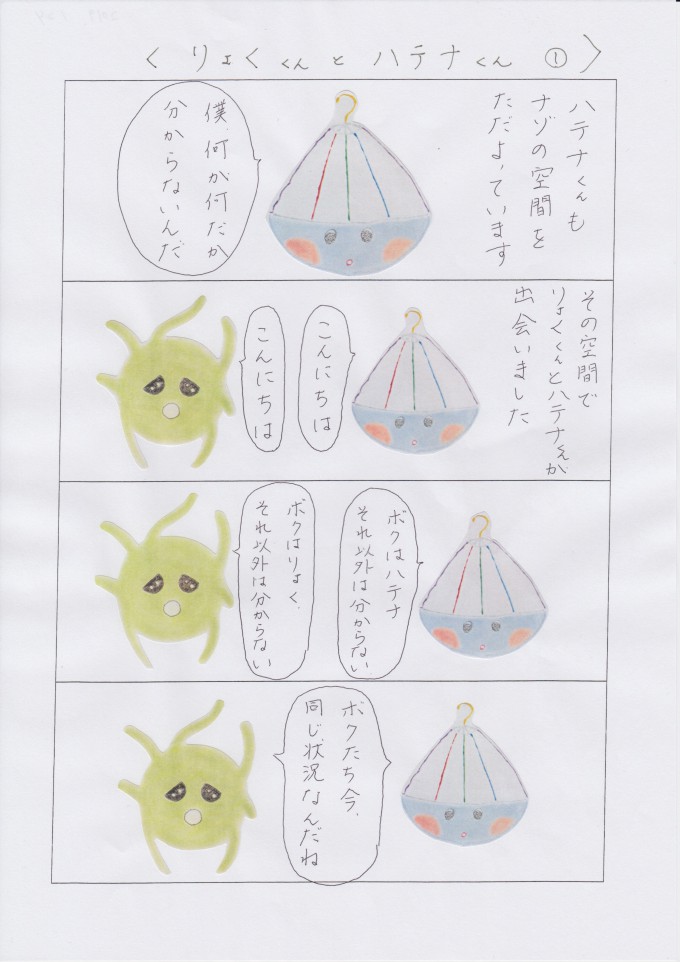 〈 りょくくんとハテナくん ① 〉
ハテナくんも
ナゾの空間を
ただよっています
僕、何が何だか
分からないんだ
その空間で
りょくくんとハテナくんが
出会いました
こんにちは
こんにちは
ボクはハテナ
それ以外は分からない
ボクはりょく、
それ以外は分からない
ボクたち今、
同じ状況なんだね